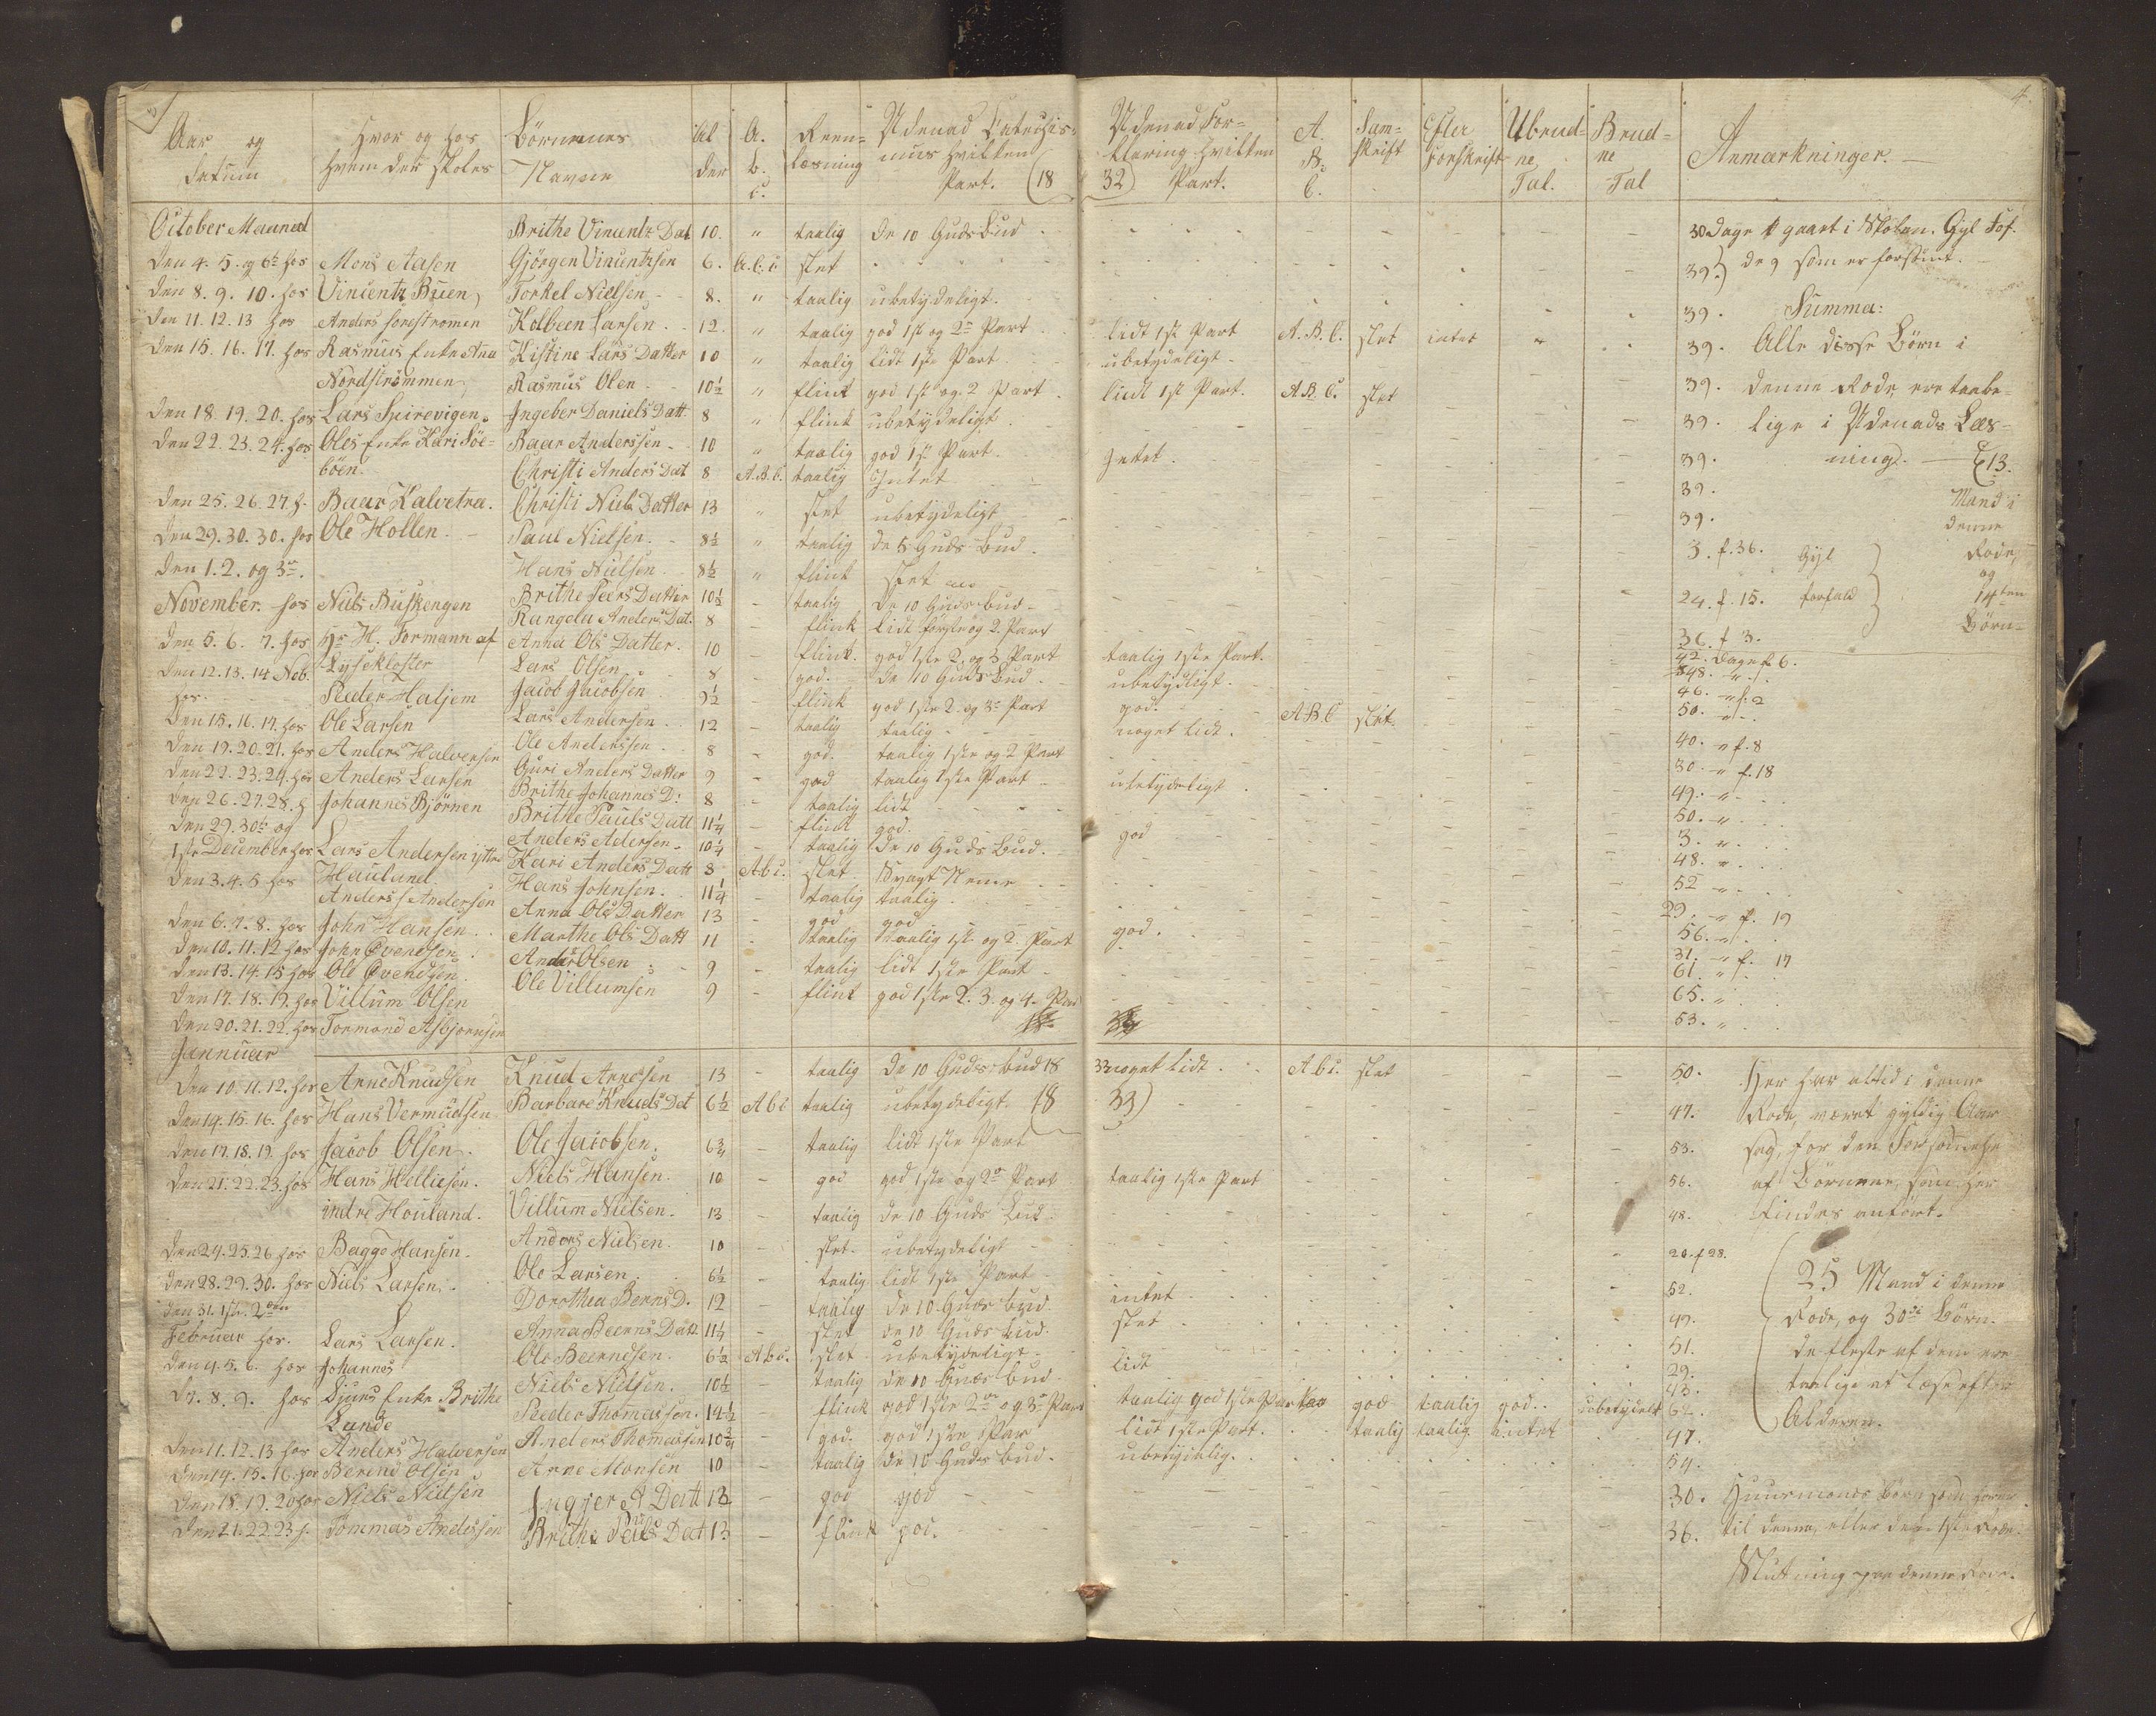 4.
Aar og Datum
Hvor og hos hvem der skoles
Börnenes Navne
Al der
A. b. c.
Reen-læsning
Udenad Catechismus hvilken Part. (18
32) Udenad Forklaring hvilken Part.
A. B. C.
Sam-skrift
Efter Forskrift
Ubrud-ne Tal.
Brud-ne Tal
Anmærkninger.
October Maaned Brithe Vincentz Dat 10. " taalig De 10 Guds Bud
den 4. 5. og 6te hos Mons Aasen Gjörgen Vincentzsen 6. A.b.c slet
den 8. 9. 10. hos Vincentz Buen Torkel Nielsen 8. " taalig ubetydeligt.
den 11. 12. 13 hos Anders Kolbeen Larsen 12 " taalig god 1ste og 2den Part lidt 1ste Part A.B.C. slet intet
den 15. 16. 17. hos Rasmus Enke Ana Kistine Lars Datter 10 " taalig lidt 1ste Part ubetydeligt
Nordströmmen Rasmus Olen 10½ " flink god 1ste og 2 Part lidt 1st Part. A.B.C. slet
den 18. 19. 20. hos Lars Ingeber Daniels Datt 8 " flink ubetydeligt
den 22. 23. 24. hos Oles Enke Kari Baar Anderssen 10 " taalig god 1st Part
böen. Christi Anders Dat 8 A.B.C. taalig Intet
den 25. 26. 27. h. Baar Kalvetra. Christi Niels Datter 13 " slet ubetydeligt
den 29. 30. 30. hos Ole Hollen Paul Nielsen. 8½ " taalig de 5 Guds Bud
den 1. 2. og 3die. Hans Nielsen 8½ " flink slet
November. hos Niels Buskengen Brithe Peers Datter 10½ - taalig De 10 Guds bud
Rangela Anders Dat. 8 - flink lidt förste og 2. Part
den 5. 6. 7. hos Hr H. Formann af Anna Ols Datter. 10 - flink. god 1ste 2. og 3 Part taalig 1ste Part.
den 12. 13. 14 Nob. Lysekloster Lars Olsen 8 - god. de 10 Guds Bud ubetydligt.
hos. Peder Haljem Jacob Jacobsen 9½ - flink god 1ste 2. og 3die Part god.
den 15. 16. 17. hos Ole Larsen Lars Andersen 12 - taalig taalig noget lidt. A B C slet.
den 19. 20. 21. hos Anders Halversen Ole Anderssen 8 - god. taalig 1ste og 2 Part
den 22. 23. 24. hos Anders Larsen Guri Anders Datter 9 - god taalig 1ste Part ubetydeligt
den 26. 27. 28. h Johannes Björnen Brithe Johannes D: 8 - taalig lidt
den 29. 30te og Brithe Pauls Datt 11¼ - flink god. god
1ste December hos Lars Andersen yttre Anders Adersen 10¼ - taalig de 10 Guds Bud.
den 3. 4. 5 hos Haulund Kari Anders Datt 8 A.b.c. slet Svagt Neme
Anders Andersen Hans Johnsen. 11¼ taalig taalig
den 6. 7. 8. hos John Hansen Anna Ols Datter 13 - god god god.
den 10. 11. 12 hos John Övendsen Marthe Ols Datt 11 taalig taalig 1ste og 2. Part
den 13. 14. 15 hos Ole Övendsen Anders Olsen 9 - taalig lidt 1ste Part
den 17. 18. 19. hos Villum Olsen Ole Villumsen 9 flink god 1ste 2. 3. og 4. Part
den 20. 21. 22. hos Tormond Asbjornsen
Jannuar
den 10. 11. 12. hos Arne Knudsen Knud Arnesen 13 - taalig De 10 Guds bud 18 33 noget lidt A b c. slet
den 14. 15. 16. hos Hans Vermundsen Barbare Knuds Dat 6½ A b c taalig ubetydeligt 18 33)
den 17. 18. 19. hos Jacob Olsen. Ole Jacobsen. 6¾ - taalig lidt 1ste Part
den 21. 22. 23. hos Hans Helliesen. Niels Hansen. 10 - god god 1ste og 2den Part taalig 1ste Part
indre Houland. Villum Nielsen. 13 - taalig de 10 Guds Bud
den 24. 25. 26 hos Bagge Hansen. Anders Nielsen. 10 - slet. ubetydeligt
den 28. 29. 30. hos Niels Larsen. Ole Larsen 6½ - taalig lidt 1ste Part
den 31. 1ste 2den Dorothea Bernts D. 12 - taalig de 10 Guds bud. intet
Februar hos. Lars Larsen. Anna Beernts Datt 11¼ - slet de 10 Guds bud. slet
den 4. 5. 6. hos Johannes Ole Beerndsen. 6½ A.b.c. slet ubetydeligt
D. 7. 8. 9. hos Enke Brithe Niels Nielsen. 10½ - taalig de 10 Guds bud lidt
Lande Peeder Thomassen. 14½ flink god 1ste 2den og 3die Part taalig god 1ste Part god taalig god.. ubetydelt
den 11. 12. 13 hos Anders Halversen Anders Thomassen 10¾ - god. god 1ste Par lidt 1ste Part. taalig taalig intet
den 14. 15. 16. hos Berend Olsen Arne Monsen 10 - taalig de 10 Guds Bud. ubetydelig.
den 18. 19. 20 hos Niels Nielsen Ingjer A Datt 12 - god god
den 21. 22. 23 h. Tommas Andersen Brithe Peils Dat 13 - flink god.
30 Dage gaaet i Skolen. Gyl Fof.
39.) de 9 som er forsömt.
39. Summa:
39. Alle disse Börn i
39. denne Rode, ere taabe-
39. lige i Udenads Læs-
39. ning. 13.
39. Mand i
39. denne
3. f. 36. Gyl Rode,
og
24. f. 15. forfald 14ten
36. f 3. Börn
42. Dage f. 6.
48. "
46. " f. 2
50. "
40. " f. 8
30. " f. 18
49. "
50. "
3. "
48. "
52 "
29. " f. 19
56. "
31. " f. 17
61. "
65. "
53. "
50. Her har altid i denne
47. Rode, været gyldig Aar
53. sag, for den Forsömelse
56. af Börnene, som her
48. findes anfört.
20. f 28.
52. 25 Mand i denne
49. Rode, og 30de Börn.
51. de fleste af dem ere
29.
43. taalige at læse efter
62. Alderen.
47.
54.
30. Huusmands Börn som hörer
36. til denne, eller den 1ste Rode.
Slutning paa denne Rode.